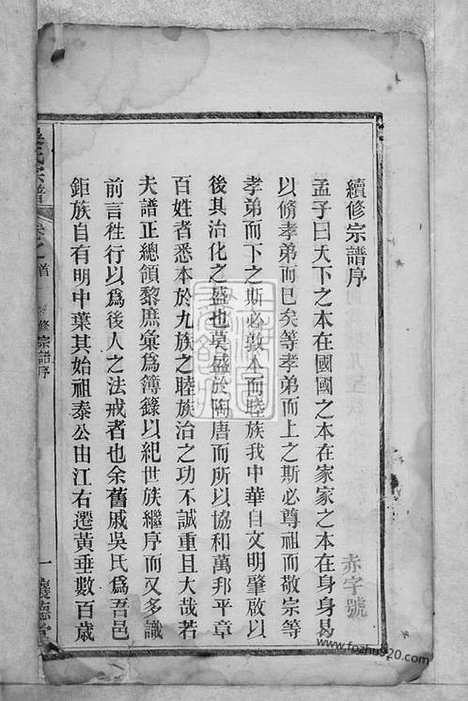 續修宗譜序
孟子曰天下之本在國國之本在家家之本在身身易
以脩孝弟而已矣等孝弟而上之斯必尊祖而敬宗等
孝弟而下之斯必敦本而睦族我中華自文明肇啟以
後其治化之盛也莫盛於陶唐而所以協和萬邦平章
百姓者悉本於九族之睦族治之功不誠重且大哉若
夫譜正總領黎庶彙為簿籙以紀世族繼序而又多識
前言徃行以爲後人之法戒者也余舊戚吳氏爲吾邑
鉅族自有明中葉其始祖泰公由江右遷黃垂數百歳
赤字號
氏宗譜
卷
首
修宗譜序
一
堂
www.fozhu920.com